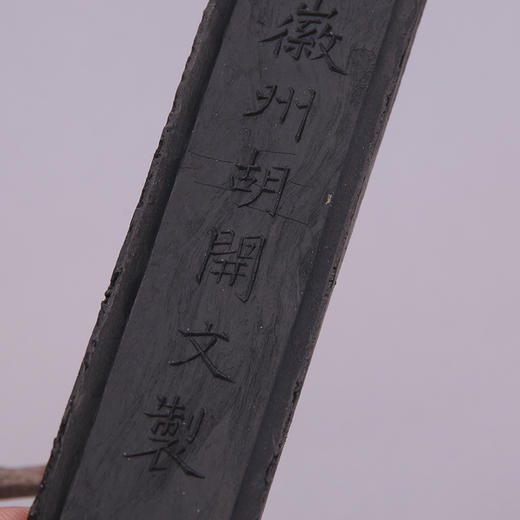 徽州胡開文製